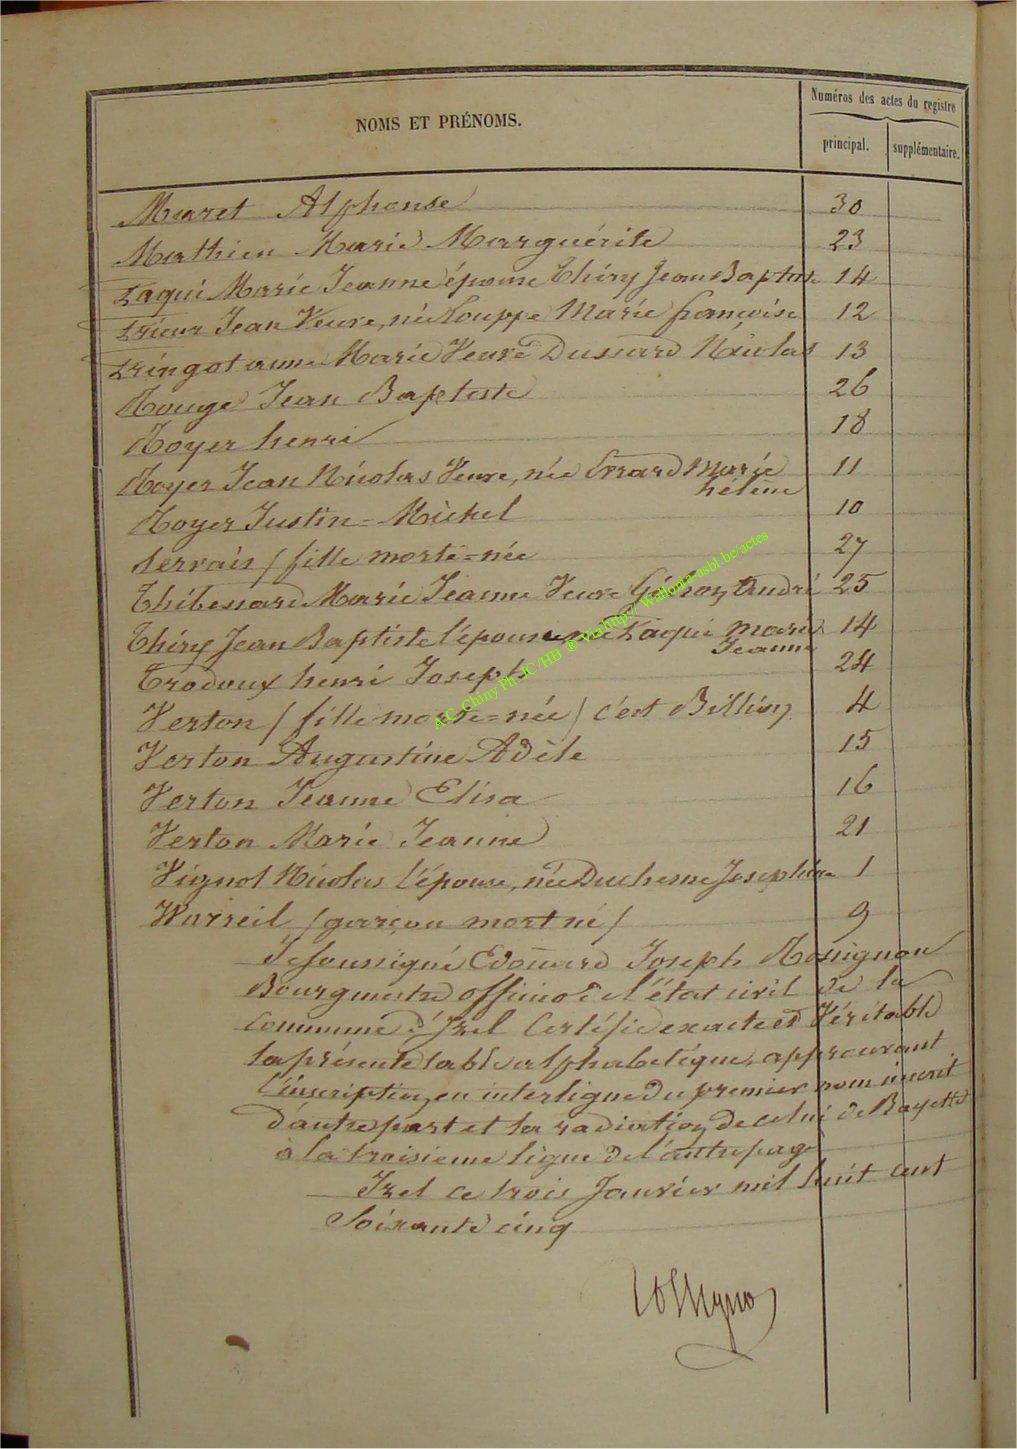 NOMS ET PRÉNOMS.
Numéros des actes du registre
principal.
supplémentaire.
Muret Alphonse 30
Mathieu Marie Marguérite 23
Laqui Marie Jeanne épouse Thiry Jean Baptiste 14
Jean Veuve, née Louppe Marie françoise 12
anne Marie Veuve Dussard Nicolas 13
Rouge Jean Baptiste 26
Royer henri 18
Royer Jean Nicolas Veuve, née Evrard Marie 11
hélène
Royer Justin-Michel 10
Servais (fille morte-née 27
Marie Jeanne Veuve André 25
Thiry Jean Baptiste l'épouse née Laqui Marie 14
Jeanne
Trodoux henri Joseph 24
Verton (fille morte-née) c'est Billion 4
Verton Augustine Adèle 15
Verton Jeanne Elisa 16
Verton Marie Jeanne 21
Vignol Nicolas l'épouse, née Duchesne Joséphine 1
Warreil (garçon mort né) 9
Je soussigné Edouard Joseph Rossignon
Bourgmestre officier de l'état civil de la
commune d'Izel Certifie exacte et Véritable
la présente table alphabétique, approuvant
l'inscription en interligne du premier nom inscrit
d'autre part et la radiation de celui de Bayette
à la troisieme ligne de l'autre page
Izel ce trois Janvier mil huit cent
Soixante cinq
Rossignon
A.C. Chiny Ph.JC/HB ® Via http:// Wallonia-asbl.be/actes